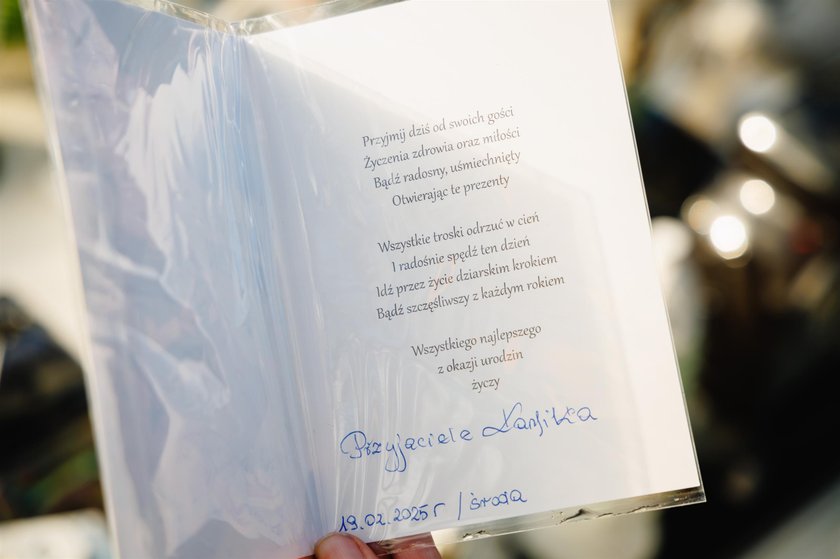 Przyjmij dziś od swoich gości
Życzenia zdrowia oraz miłości
Bądź radosny, uśmiechnięty
Otwierając te prezenty
Wszystkie troski odrzuć w cień
I radośnie spędź ten dzień
Idź przez życie dziarskim krokiem
Bądź szczęśliwszy z każdym rokiem
Wszystkiego najlepszego
z okazji urodzin
życzy
Przyjaciele
19.02.2025r / środa